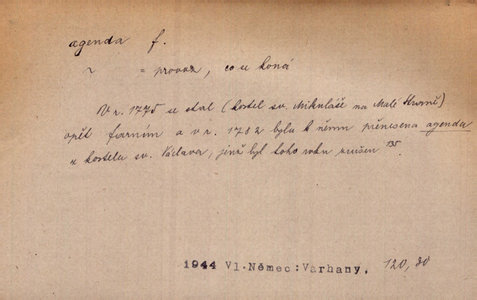 agenda f.
~ = provoz, co se koná
V r. 1775 se stal (kostel sv. Mikuláše na Malé Straně)
opět farním a v r. 1782 byla k němu přenesena agenda
z kostela sv. Václava, jenž byl toho roku zrušen 135.
1944 Vl.Němec:Varhany, 120, 80